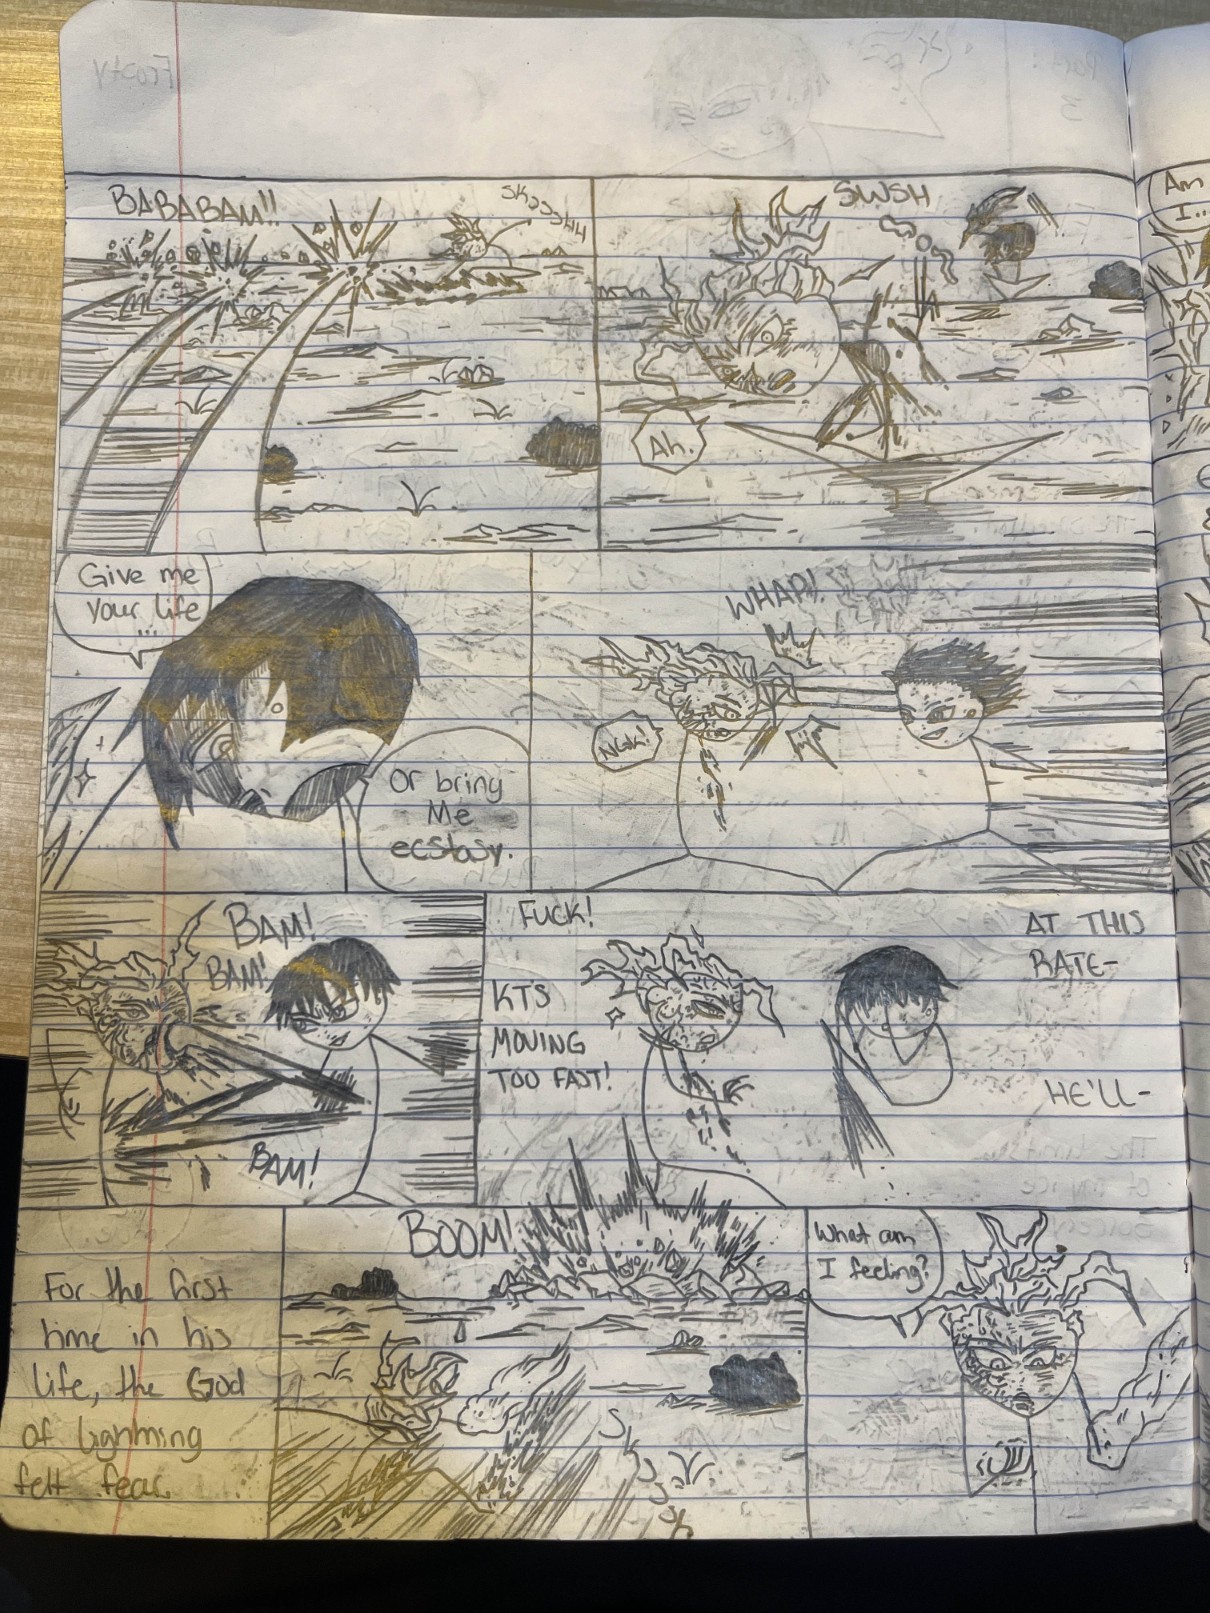 BABABAM!!
SKSSSHH
SWSH
Ah.
Am
I..
Give me
your life
...
Or bring
Me
ecstasy.
WHAP!
NGH!
BAM!
BAM!
BAM!
FUCK!
KTS
MOVING
TOO FAST!
AT THIS
RATE-
HE'LL-
For the first
time in his
life, the God
of lightning
felt fear.
BOOM!
What am
I feeling?